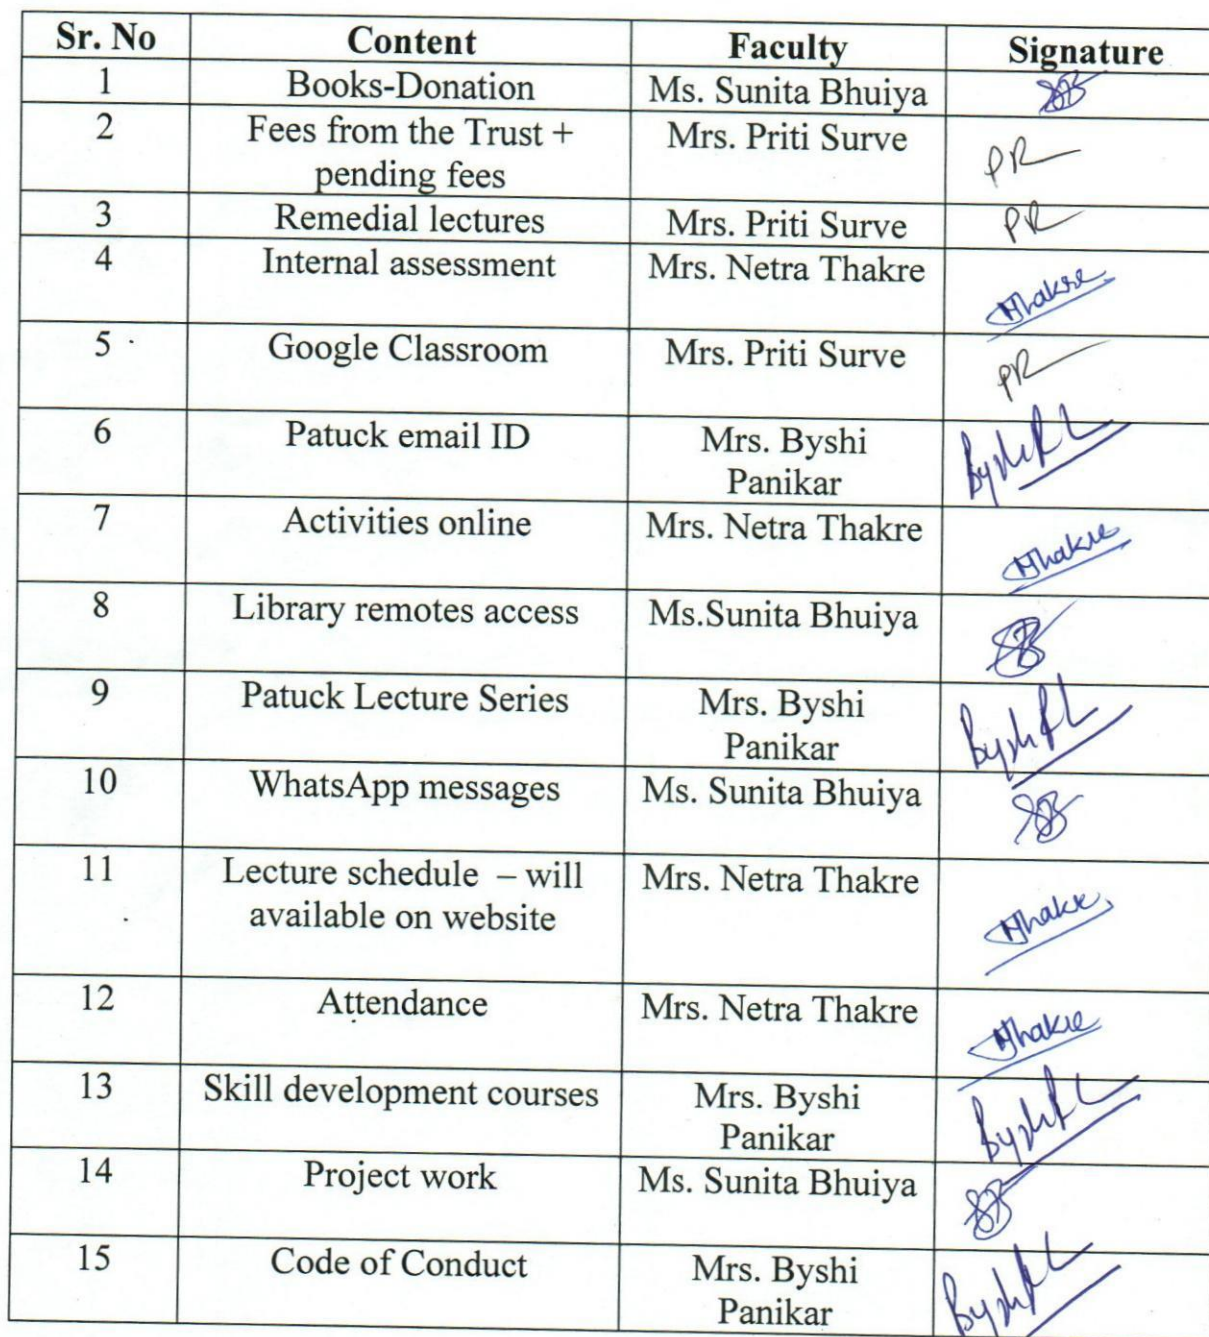 Sr. No Content Faculty Signature
1 Books-Donation Ms. Sunita Bhuiya SB
2 Fees from the Trust + Mrs. Priti Surve
pending fees PR
3 Remedial lectures Mrs. Priti Surve PR
4 Internal assessment Mrs. Netra Thakre
NThakre
5 Google Classroom Mrs. Priti Surve
PR
6 Patuck email ID Mrs. Byshi
Panikar
7 Activities online Mrs. Netra Thakre
NThakre
8 Library remotes access Ms.Sunita Bhuiya
SB
9 Patuck Lecture Series Mrs. Byshi
Panikar
10 WhatsApp messages Ms. Sunita Bhuiya
SB
11 Lecture schedule – will Mrs. Netra Thakre
available on website NThakre
12 Attendance Mrs. Netra Thakre
NThakre
13 Skill development courses Mrs. Byshi
Panikar
14 Project work Ms. Sunita Bhuiya
SB
15 Code of Conduct Mrs. Byshi
Panikar